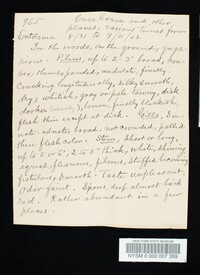 965 Cuse Evans and other
places various times from
Entoloma 8/31 to 9/11/02
In the woods, on the ground, grega-
rious. Pileus, up to 2-3" broad, con-
vex, then expanded, undulate, finally
cracking longitudinally, silky smooth,
dry; whitish, gray or pale tawny, disk
darker brown, finally blackish,
flesh thin except at disk. Gills, sin-
uate-adnate, broad, not crowded, pallid
then flesh color. Stem, short or long,
up to 5 or 6", 2 to 5" thick, white, shining
equal, flexuous, fibrous, stuffed becoming
fistulose, smooth. Taste unpleasant.
Odor faint. Spore, deep almost brick
red. Rather abundant in a few
places.
NEW YORK STATE MUSEUM
NYSM 0 000 007 359